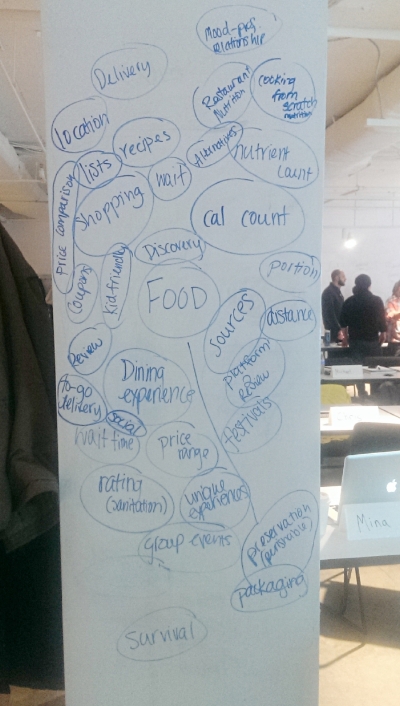 Mood-
relationship
Delivery
Restaurant
Nutrition
cooking
from
scratch
nutrition
location
recipes
Alternatives
nutrient
count
lists
wait
Price comparison
Shopping
cal count
Coupons
Kid friendly
Discovery
portion
FOOD
Sources
distance
Review
Dining
experience
platform
Review
to-go
delivery
Social
festivals
wait time
price
range
rating
(sanitation)
unique
experiences
group events
preservation
(perishable)
packaging
Survival
Mina